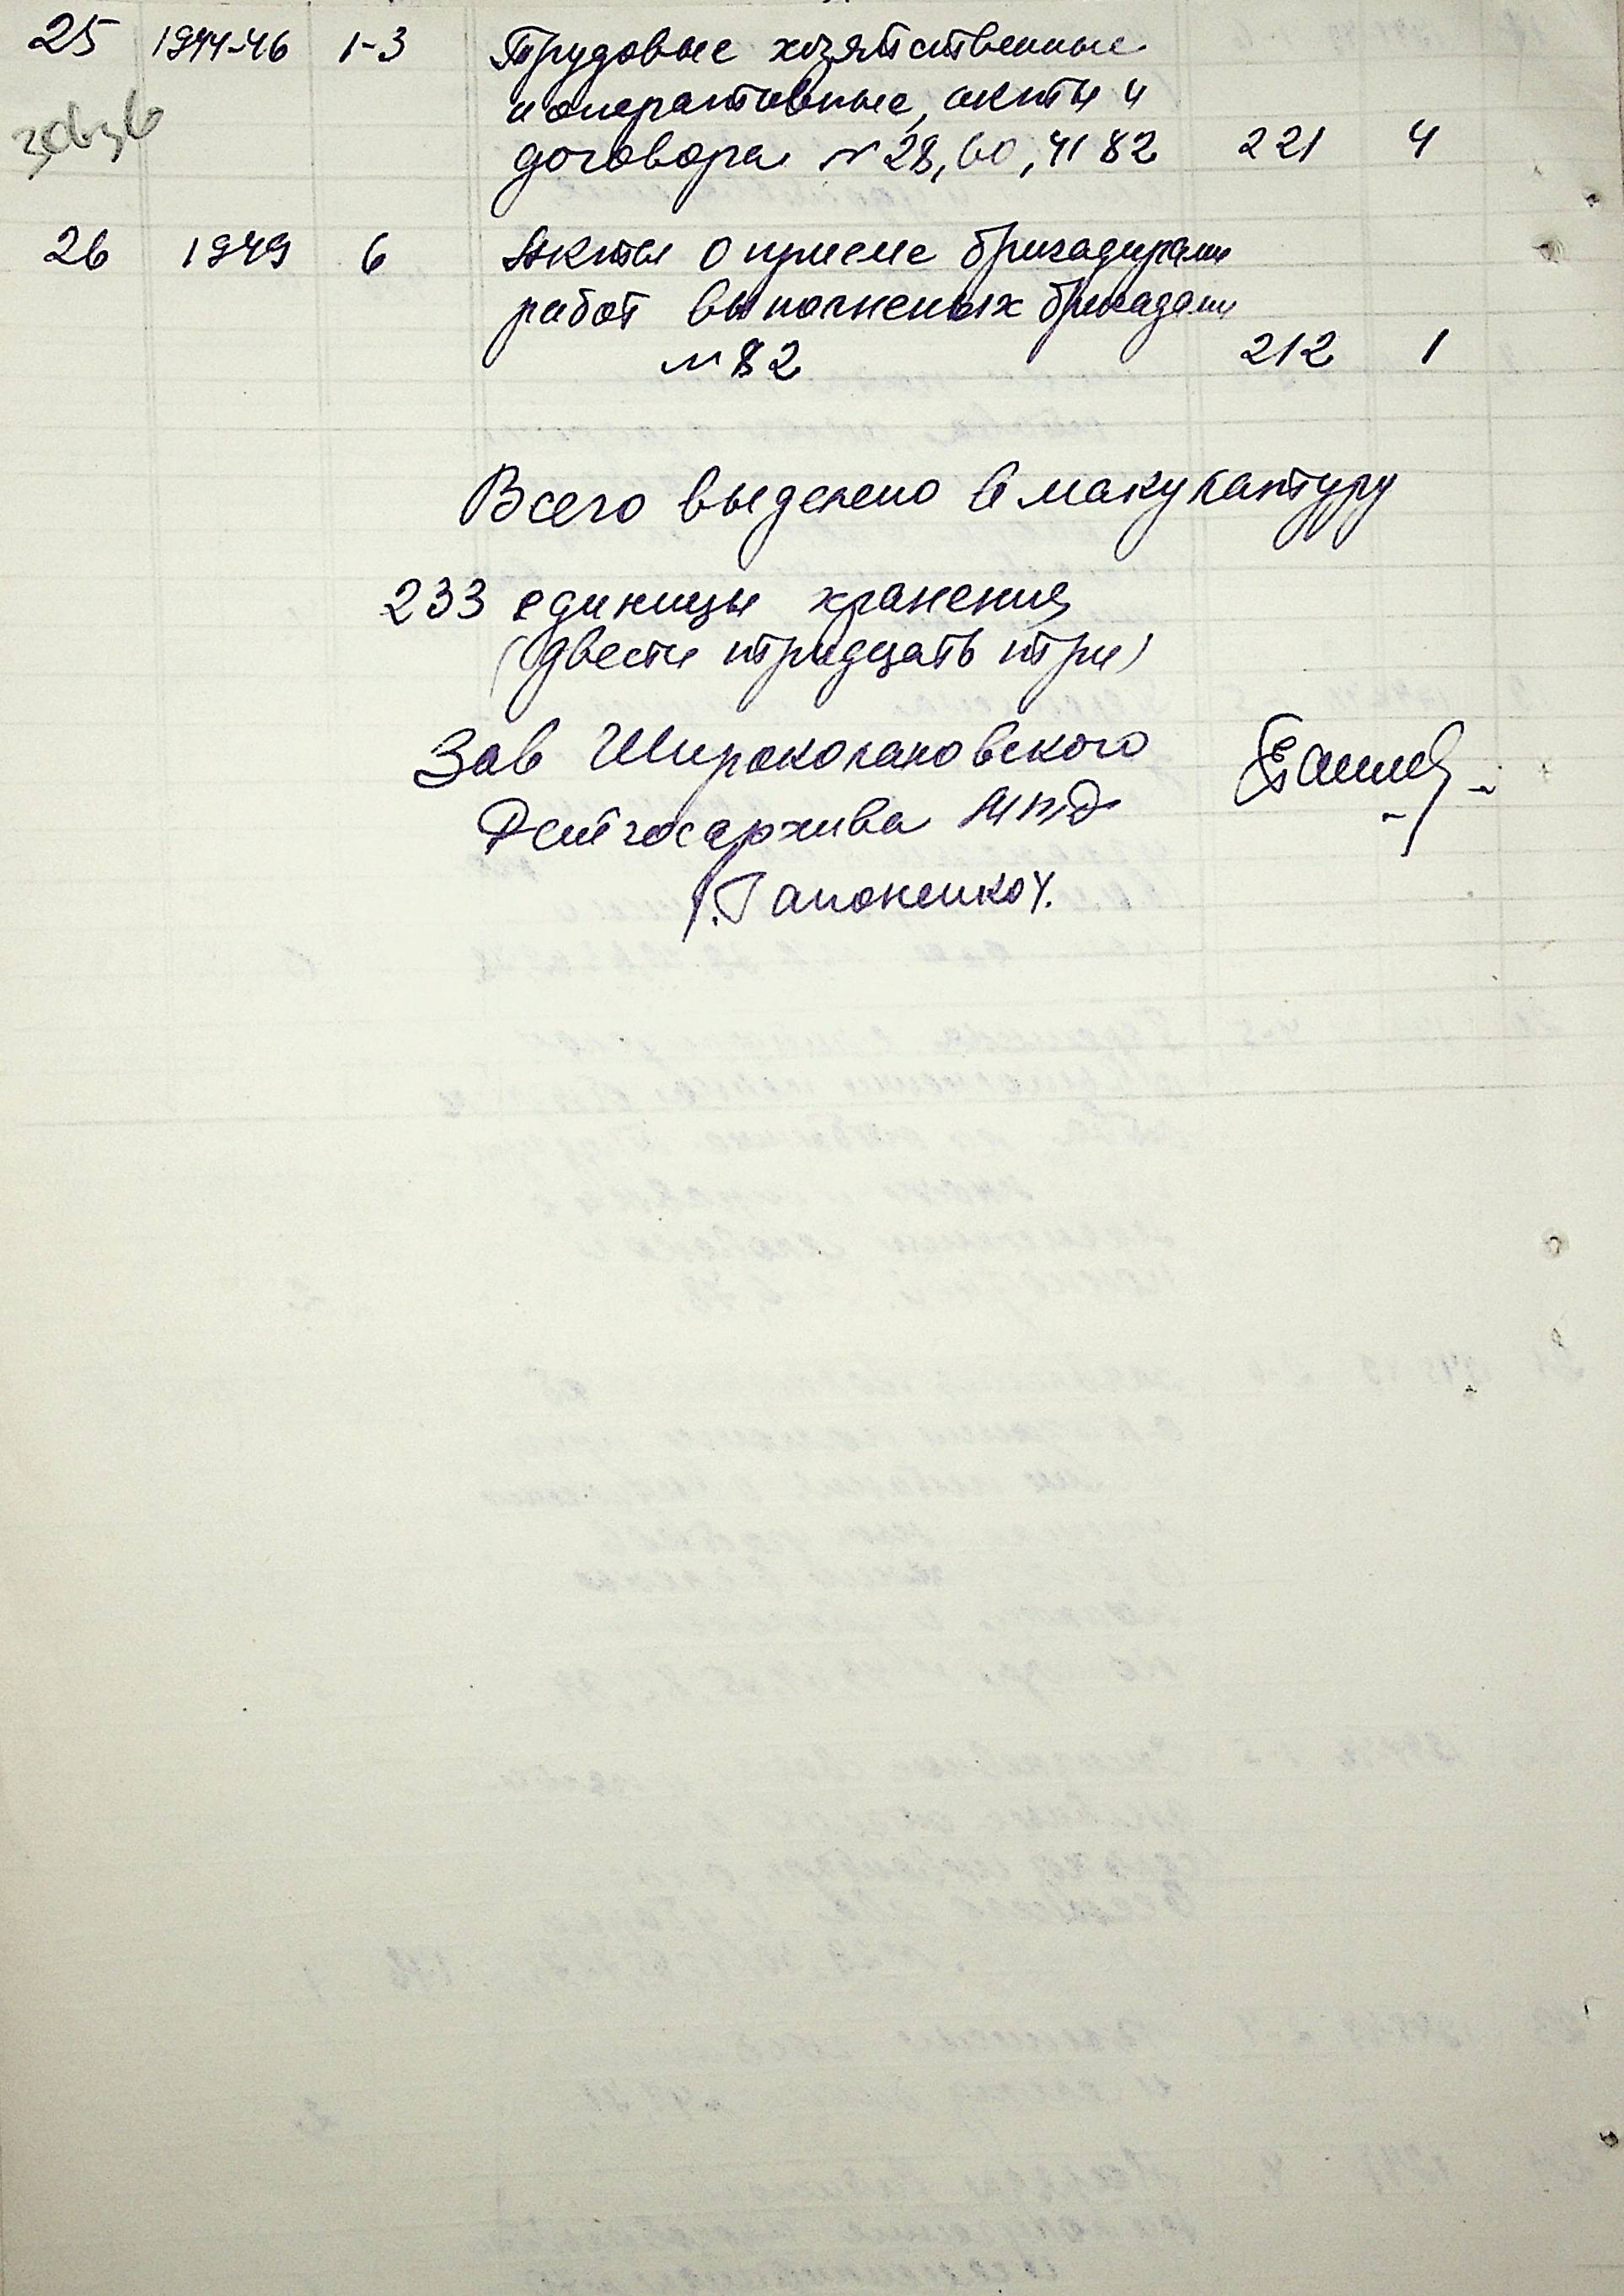 25 1944-46 1-3 Трудовые хозяйственные
и оперативные, акты и
договора № 28, 60, 41 82 221 4
26 1949 6 Акты о приеме бригадирами
работ выполненых бригадами
№ 82 212 1
Всего выделено в макулатуру
233 единицы хранения
(двести тридцать три)
Зав Широколановского
Райгосархива МВД
(Гапоненко).